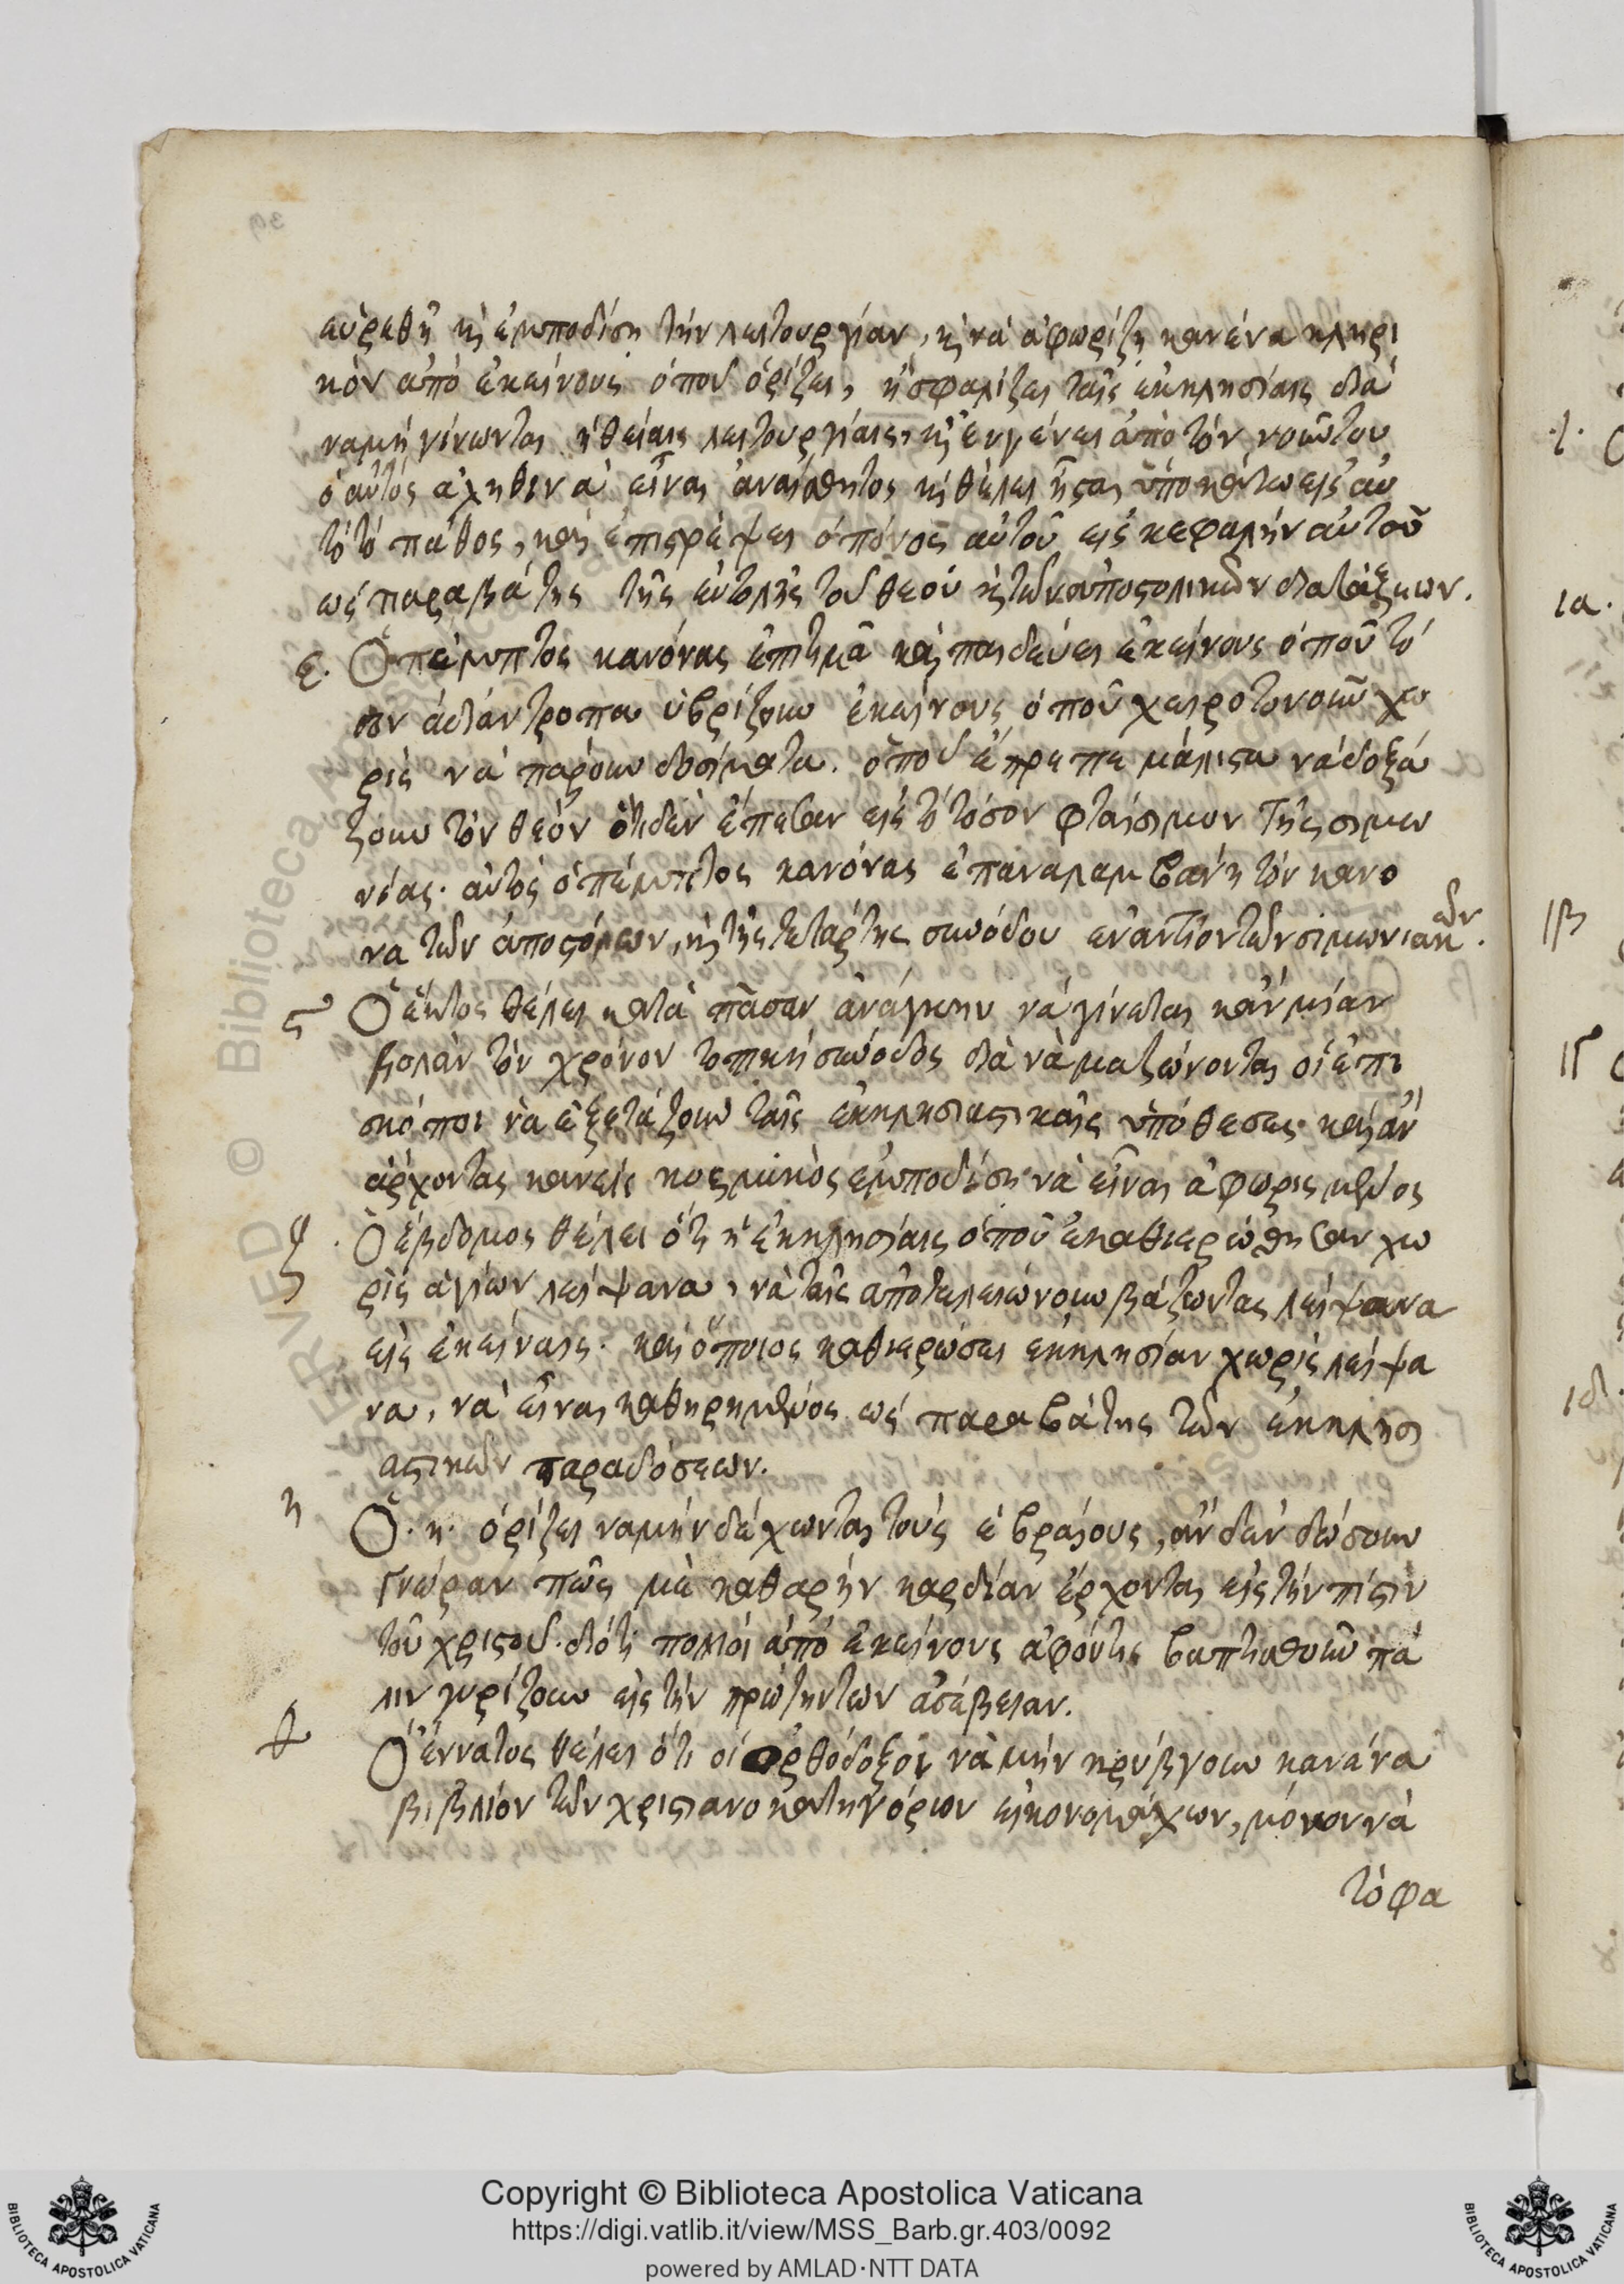 εὑρεθῆ κὶ ἐμποδίση τὴν λειτουργίαν, κὶ νὰ ἀφωρίζη κανένα κληρι
κὸν ἀπὸ ἐκείνους ὁποῦ ὁρίζει, ἢ σφαλίζει ταῖς ἐκκλησίαις διὰ
ναμὴ γίνωνται ἡ θείαις λειτουργίαις, κὶ ἐυγένει ἀπὸ τὸν νοῦν του
ὁ αὐτὸς ἀληθινὰ εἶναι ἀναίσθητος κὶ θέλει ἦσται ὑποκάτω εἰς αὐ
τὸ τὸ πάθος, καὶ ἐπιστρέψει ὁ πόνος αὐτοῦ εἰς κεφαλὴν αὐτοῦ
ὡς παραβάτης τῆς ἐντολῆς τοῦ θεοῦ κὶ τῶν ἀποστολικῶν διατάξεων.
ε. Ὁ πέμπτος κανόνας ἐπιτιμᾶ καὶ παιδεύει ἐκείνους ὁποῦ τό
σον ἀδιάντροπα ὑβρίζουν ἐκείνους ὁποῦ χειροτονοῦν χω
ρὶς νὰ πάρουν δοσίματα. ὁποῦ ἔπρεπε μάλιστα νὰ δοξά
ζουν τὸν θεὸν ὅτι δὲν ἔπεσαν εἰς τὸ τόσον φταίσιμον τῆς σιμω
νίας. αὐτὸς ὁ πέμπτος κανόνας ἐπαναλαμβάνη τὸν κανο
να τῶν ἀποστόλων, κὶ τῆς τετάρτης συνόδου ἐναντίον τῶν σιμωνιακῶν.
ϛ Ὁ ἕκτος θέλει κατὰ πᾶσαν ἀνάγκην νὰ γίνεται κἂν μίαν
βολὰν τὸν χρόνον τοπικὴ σύνοδος διὰ νὰ μαζώνονται οἱ ἐπι
σκόποι νὰ ἐξετάζουν ταῖς ἐκκλησιαστικαῖς ὑπόθεσες. καὶ ἂν
ἄρχοντας κανεὶς κοσμικὸς ἐμποδίση νὰ εἶναι ἀφωρισμένος
ζ. Ὁ ἕβδομος θέλει ὅτι ἡ ἐκκλησίαις ὁποῦ ἐκαθιερώθησαν χω
ρὶς ἁγίων λείψανα, νὰ ταῖς ἀποτελειώνουν βάζωντας λείψανα
εἰς ἐκείναις. καὶ ὅποιος καθιερώσει ἐκκλησίαν χωρὶς λείψα
να, νὰ εἶναι καθηρημένος ὡς παραβάτης τῶν ἐκκλησι
αστικῶν παραδόσεων.
η Ὁ. η. ὁρίζει ναμὴν δέχωνται τοὺς ἑβραίους, ἂν δὲν δώσουν
γνώραν πῶς μὲ καθαρὴν καρδίαν ἔρχονται εἰς τὴν πίστιν
τοῦ χριστοῦ. διότι πολλοὶ ἀπὸ ἐκείνους ἀφόντις βαπτισθοῦν πά
λιν γυρίζουν εἰς τὴν πρώτην των ἀσέβειαν.
θ Ὁ ἔννατος θέλει ὅτι οἱ ὀρθόδοξοι νὰ μὴν κρύβγουν κανένα
βιβλίον τῶν χριστιανοκατηγόρων εἰκονομάχων, μόνον νὰ
τὸ φα
39
.ι.
ια.
ιβ
ιγ
ιδ.
Copyright © Biblioteca Apostolica Vaticana
https://digi.vatlib.it/view/MSS_Barb.gr.403/0092
powered by AMLAD·NTT DATA
BIBLIOTECA APOSTOLICA VATICANA
BIBLIOTECA APOSTOLICA VATICANA